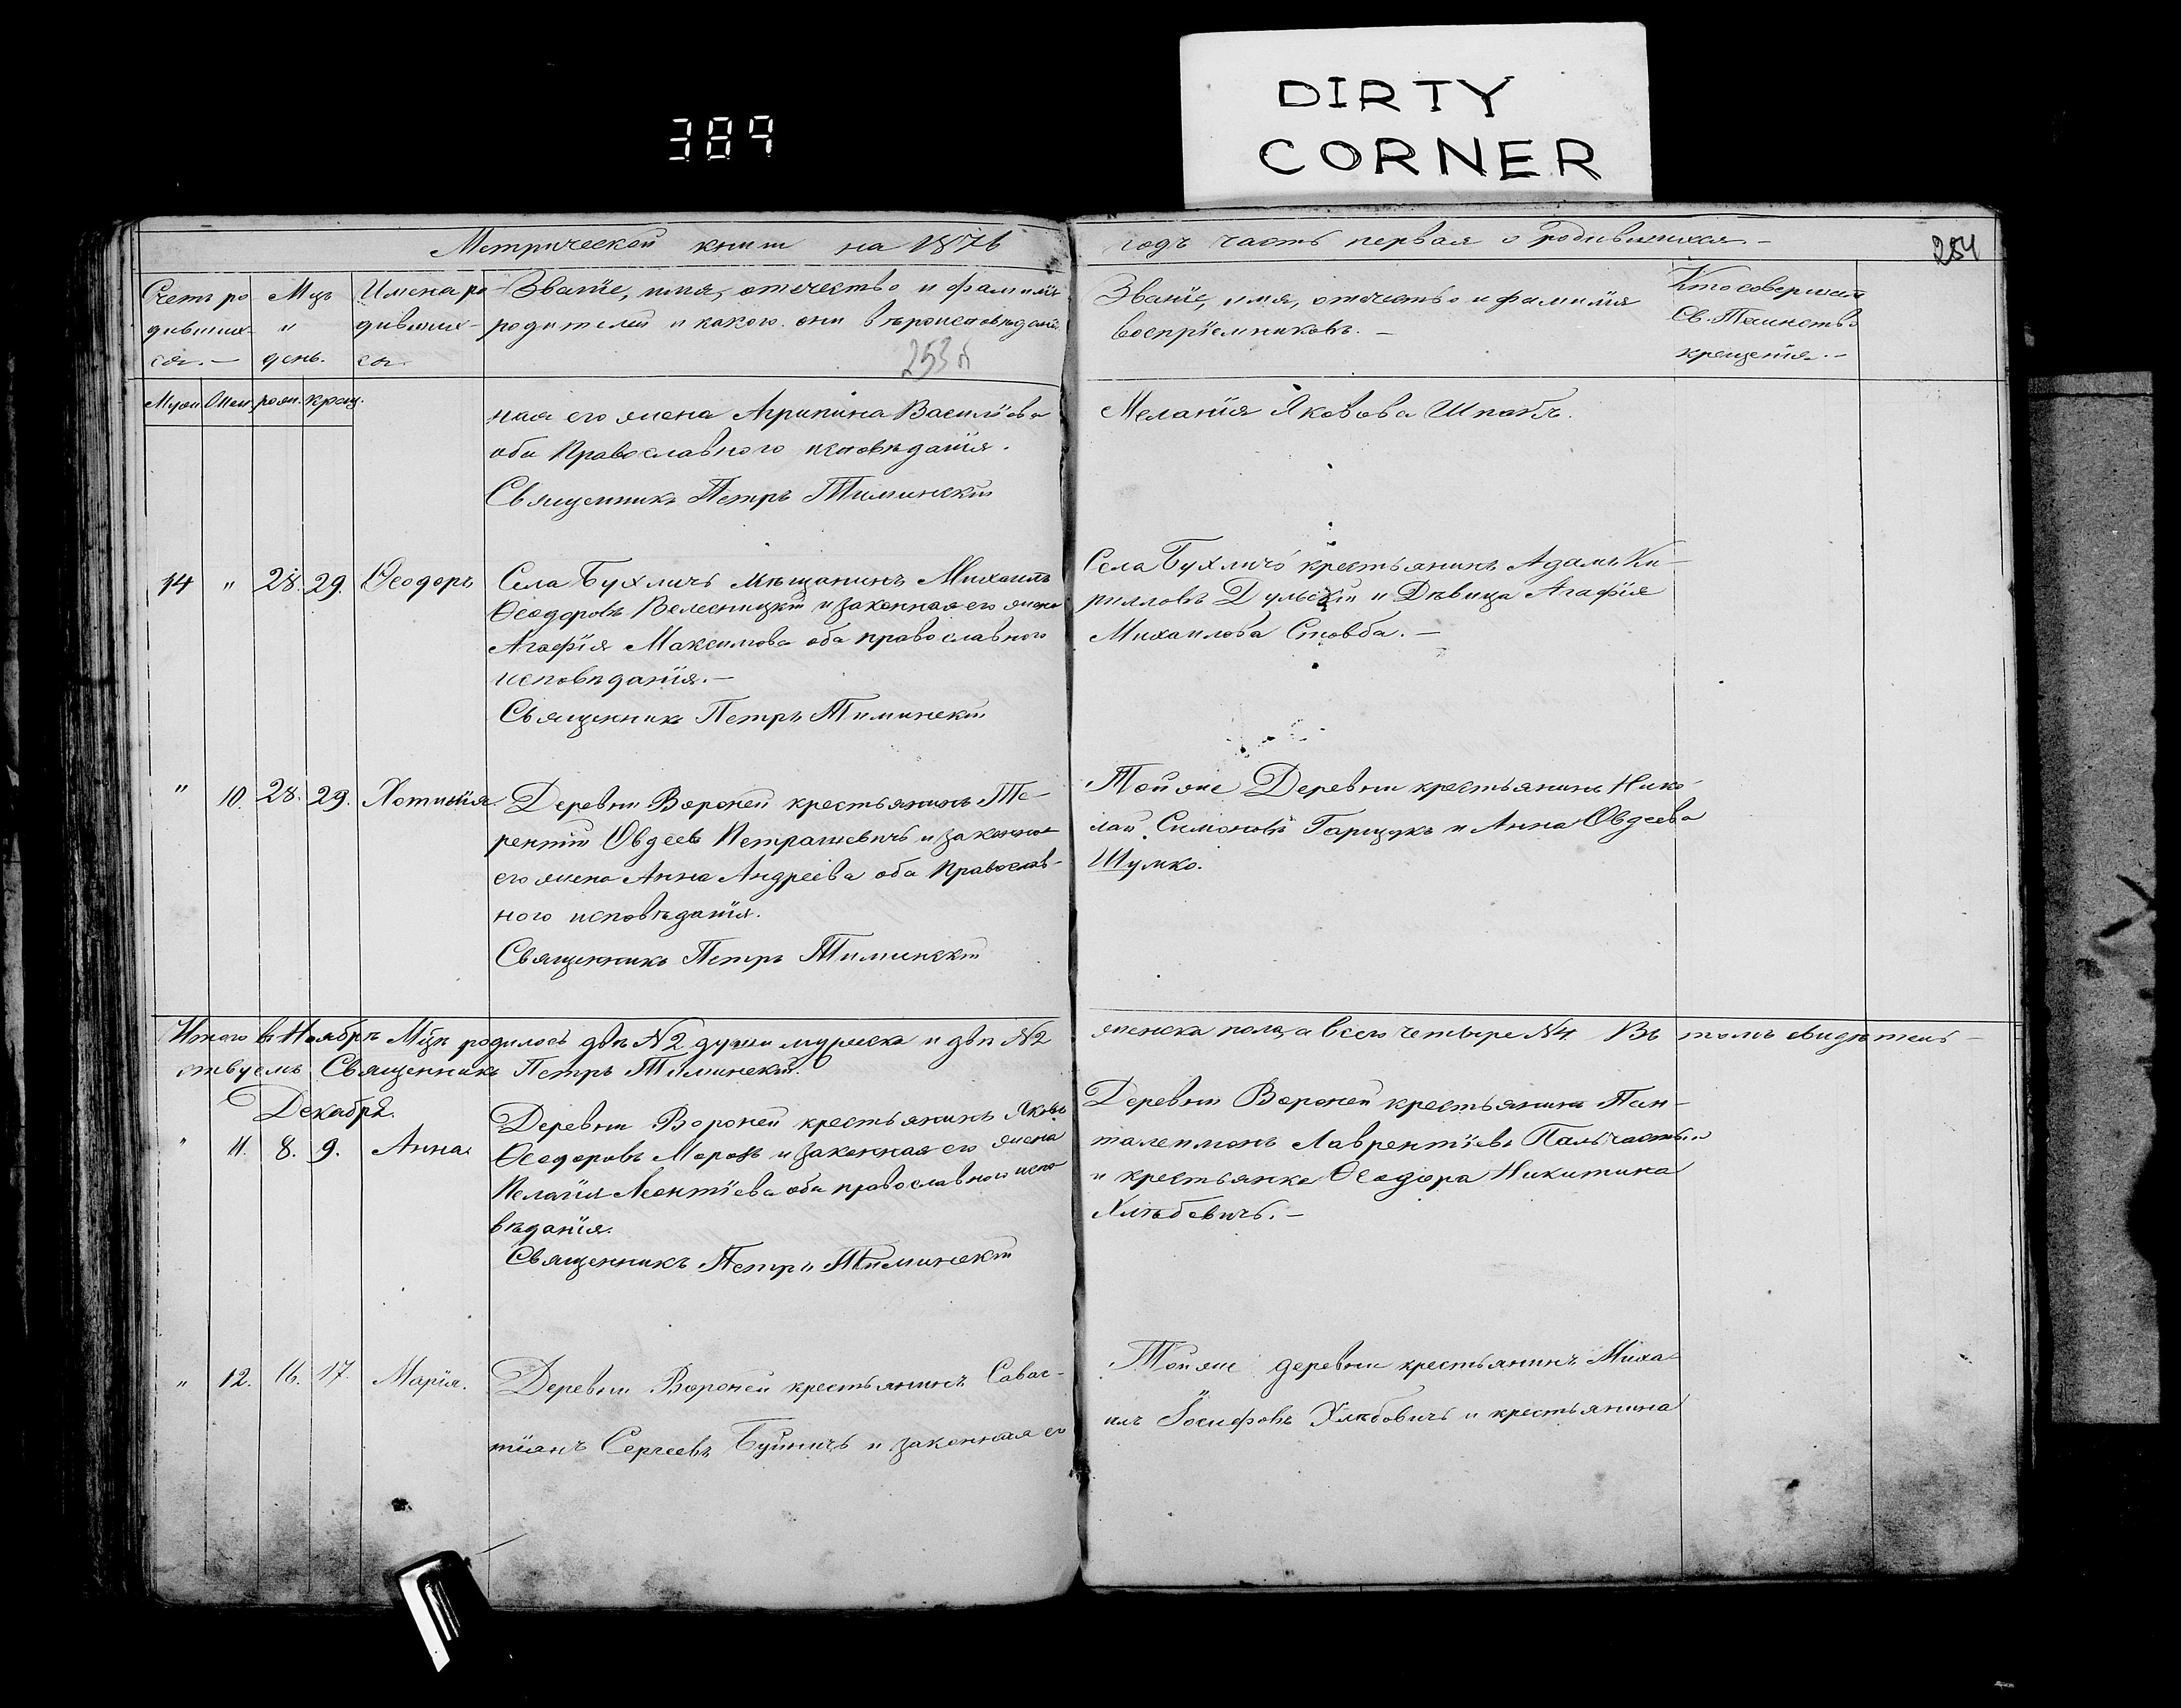 DIRTY
CORNER
389
Метрической книги на 1876
годъ часть первая о родившихся. —
254
Счетъ ро
дивших-
ся. —
Мцъ
и
день.
Имена ро
дивших-
ся
Званіе, имя, отечество и фамилія
родителей и какого они вѣроисповѣданія.
253 б
Званіе, имя, отечество и фамилія
воспріемниковъ. —
Кто совершалъ
Св. Таинство
крещенія. —
Муж. Жен. рожд. крещ.
ная его жена Агрипина Василіева
оба Православного исповѣданія.
Священникъ Петръ Тиминскій
Меланія Яковова Шпакъ.
14 " 28. 29. Ѳеодоръ
Села Бухличь мѣщанинъ Михаилъ
Ѳеодоровъ Велесницкій и законная его жена
Агафія Максимова оба православного
исповѣданія. —
Священникъ Петръ Тиминскій
Села Бухличь крестьянинъ Адамъ Ки-
рилловъ Дульскій и Дѣвица Агафія
Михаилова Стовба. —
" 10. 28. 29. Хотинія.
Деревни Вороней крестьянинъ Те-
рентій Овдеевъ Петрашевичъ и законная
его жена Анна Андреева оба Православ-
ного исповѣданія.
Священникъ Петръ Тиминскій
Той же Деревни крестьянинъ Нико-
лай Симоновъ Гарщукъ и Анна Овдеева
Шумко.
Итого въ Ноябрѣ Мцѣ родилось двѣ №2 души мужеска и двѣ №2
женска пола, а всего четыре №4. Въ томъ свидѣтель-
ствуемъ Священникъ Петръ Тиминскій.
Декабрь.
" 11. 8. 9. Анна
Деревни Вороней крестьянинъ Яковъ
Ѳеодоровъ Морозъ и законная его жена
Пелагія Леонтіева оба православного испо
вѣданія.
Священникъ Петръ Тиминскій
Деревни Вороней крестьянинъ Пан-
талеимонъ Лаврентіевъ
и крестьянка Ѳеодора Никитина
Хлѣбовичъ. —
" 12. 16. 17. Марія.
Деревни Вороней крестьянинъ Савас-
тіянъ Сергеевъ Буйничъ и законная его
Той же деревни крестьянинъ Миха-
илъ Іосифовъ Хлѣбовичъ и крестьянина